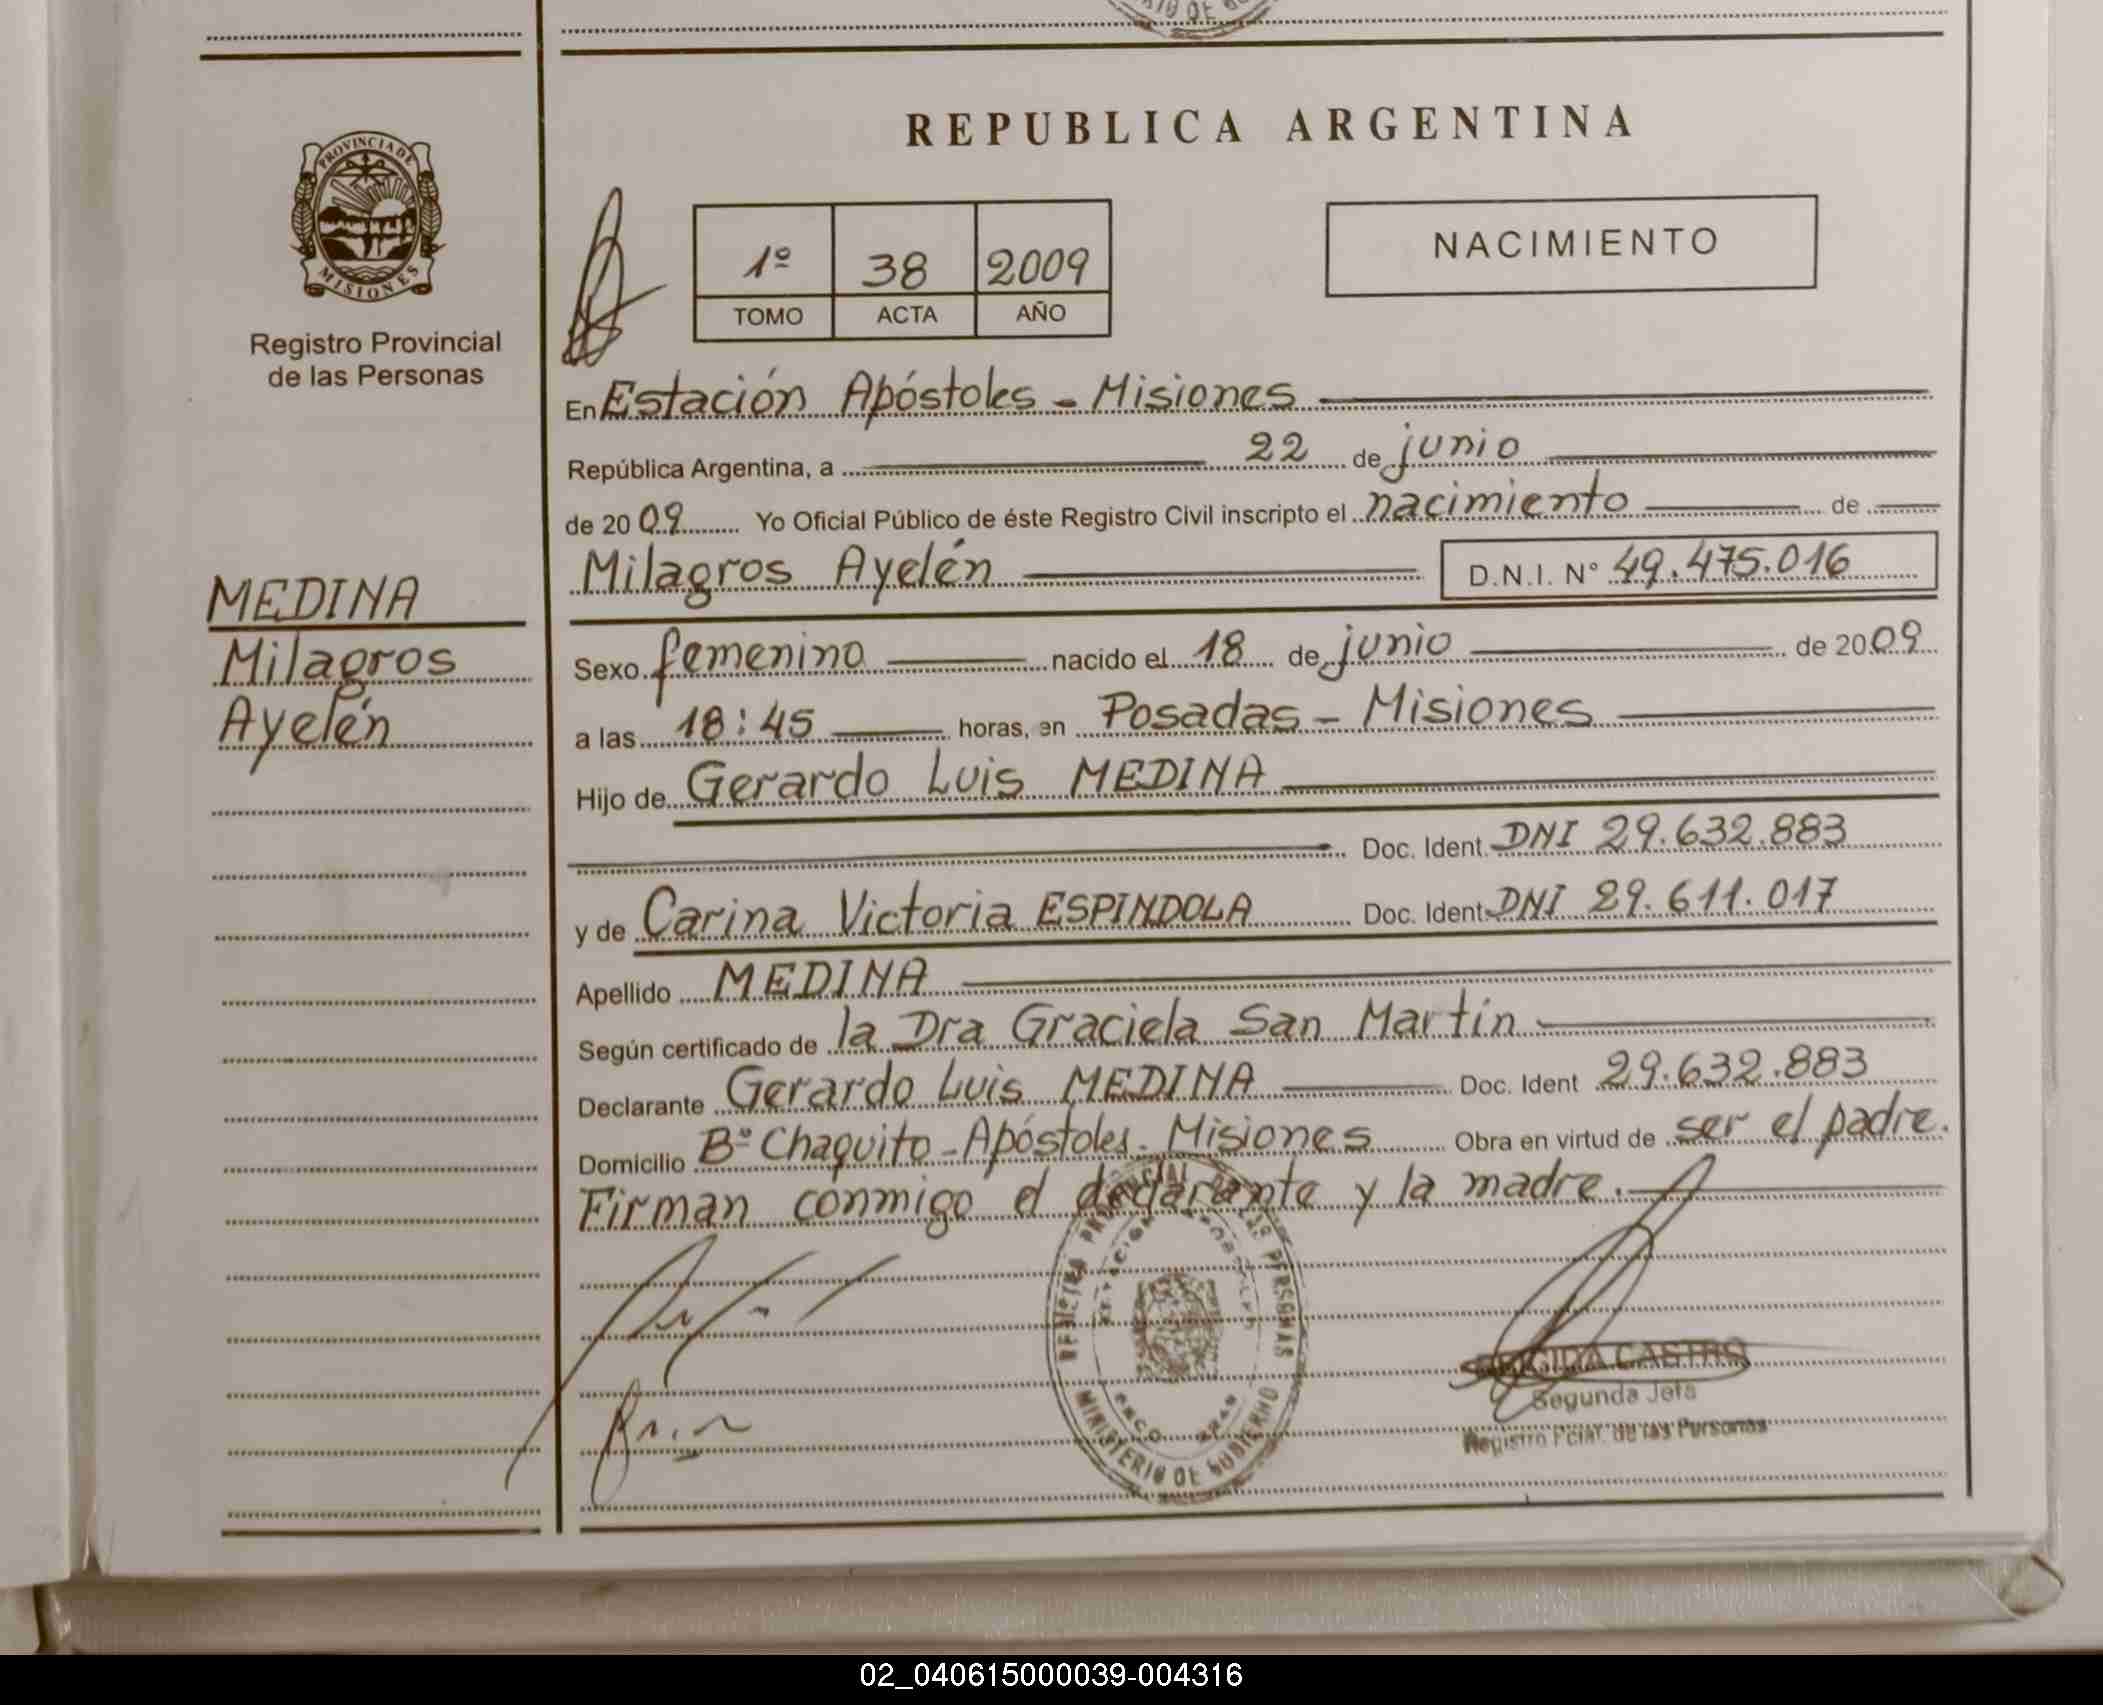 REPUBLICA ARGENTINA
PROVINCIA DE
MISIONES
Registro Provincial
de las Personas
1º 38 2009
TOMO ACTA AÑO
NACIMIENTO
En Estación Apóstoles - Misiones
República Argentina, a 22 de junio
de 2009 Yo Oficial Público de éste Registro Civil inscripto el nacimiento de
Milagros Ayelén D.N.I. Nº 49.475.016
MEDINA
Milagros
Ayelén
Sexo femenino nacido el 18 de junio de 2009
a las 18:45 horas, en Posadas - Misiones
Hijo de Gerardo Luis MEDINA
Doc. Ident. DNI 29.632.883
y de Carina Victoria ESPINDOLA Doc. Ident. DNI 29.611.017
Apellido MEDINA
Según certificado de la Dra Graciela San Martín
Declarante Gerardo Luis MEDINA Doc. Ident 29.632.883
Domicilio Bº Chaquito - Apóstoles - Misiones Obra en virtud de ser el padre.
Firman conmigo el declarante y la madre.
REGISTRO PROVINCIAL DE LAS PERSONAS
MINISTERIO DE GOBIERNO
CASTRO
Segunda Jefa
Registro Pcial. de las Personas
02_040615000039-004316